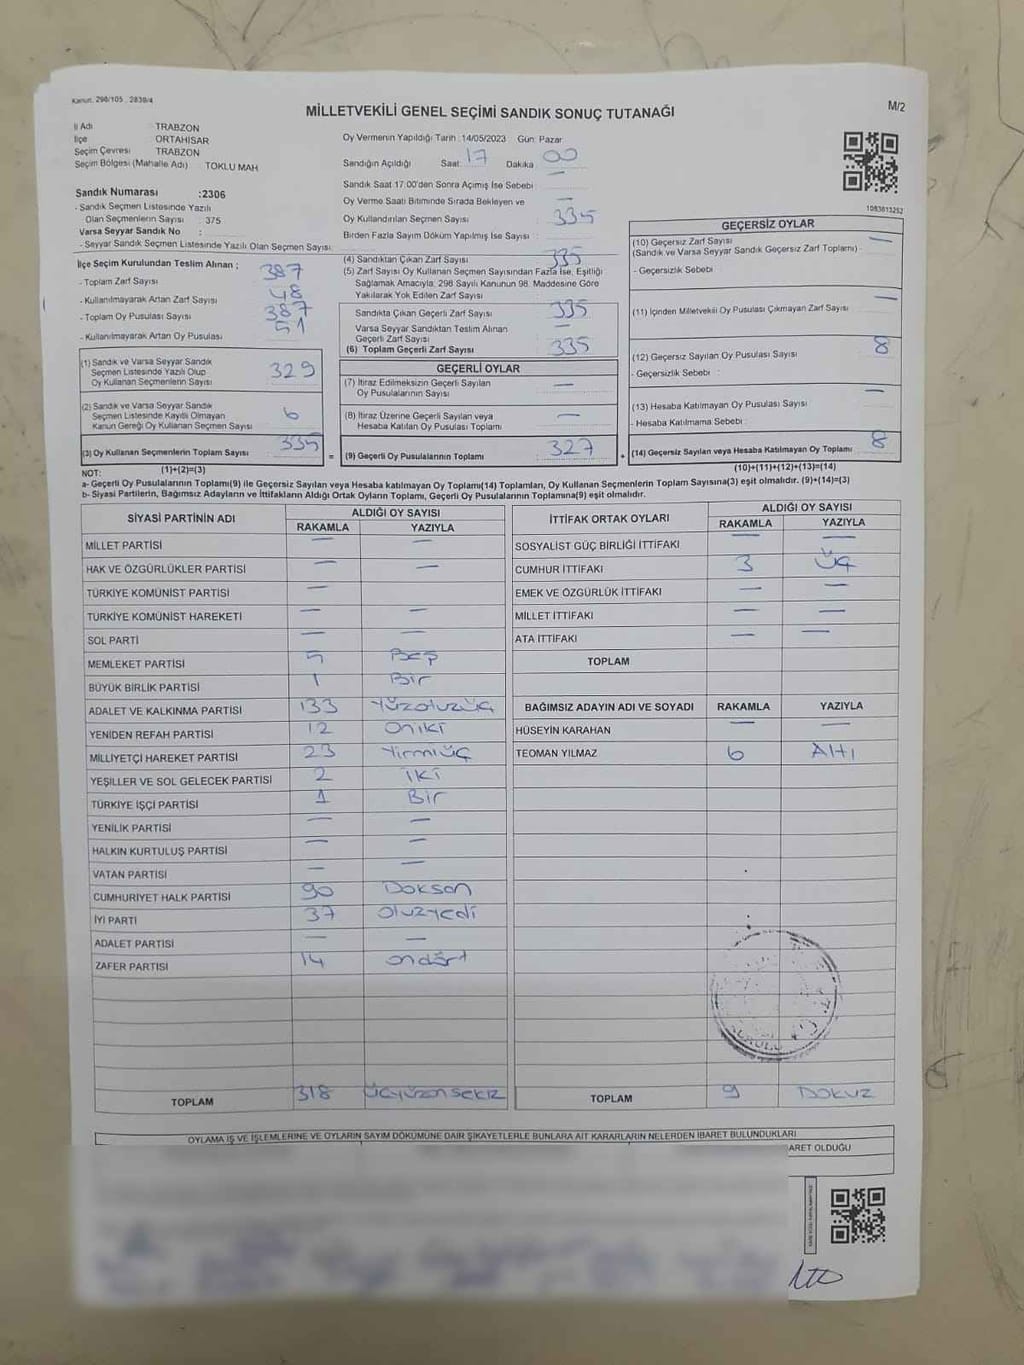 Kanun: 298/105 , 2839/4
MİLLETVEKİLİ GENEL SEÇİMİ SANDIK SONUÇ TUTANAĞI
M/2
İl Adı TRABZON
İlçe ORTAHİSAR
Seçim Çevresi TRABZON
Seçim Bölgesi (Mahalle Adı) TOKLU MAH
Sandık Numarası :2306
- Sandık Seçmen Listesinde Yazılı
Olan Seçmenlerin Sayısı : 375
Varsa Seyyar Sandık No :
- Seyyar Sandık Seçmen Listesinde Yazılı Olan Seçmen Sayısı:
Oy Vermenin Yapıldığı Tarih :14/05/2023 Gün: Pazar
Sandığın Açıldığı Saat: 17 Dakika 00
Sandık Saat 17.00'den Sonra Açımış İse Sebebi : —
Oy Verme Saati Bitiminde Sırada Bekleyen ve —
Oy Kullandırılan Seçmen Sayısı : 335
Birden Fazla Sayım Döküm Yapılmış İse Sayısı :
1083613252
İlçe Seçim Kurulundan Teslim Alınan ;
- Toplam Zarf Sayısı 387
- Kullanılmayarak Artan Zarf Sayısı 48
- Toplam Oy Pusulası Sayısı 387
- Kullanılmayarak Artan Oy Pusulası 51
(1) Sandık ve Varsa Seyyar Sandık
Seçmen Listesinde Yazılı Olup
Oy Kullanan Seçmenlerin Sayısı 329
(2) Sandık ve Varsa Seyyar Sandık
Seçmen Listesinde Kayıtlı Olmayan
Kanun Gereği Oy Kullanan Seçmen Sayısı 6
(3) Oy Kullanan Seçmenlerin Toplam Sayısı 335
(1)+(2)=(3)
(4) Sandıktan Çıkan Zarf Sayısı : 335
(5) Zarf Sayısı Oy Kullanan Seçmen Sayısından Fazla İse, Eşitliği
Sağlamak Amacıyla, 298 Sayılı Kanunun 98. Maddesine Göre
Yakılarak Yok Edilen Zarf Sayısı
Sandıkta Çıkan Geçerli Zarf Sayısı : 335
Varsa Seyyar Sandıktan Teslim Alınan
Geçerli Zarf Sayısı —
(6) Toplam Geçerli Zarf Sayısı 335
GEÇERLİ OYLAR
(7) İtiraz Edilmeksizin Geçerli Sayılan
Oy Pusulalarının Sayısı —
(8) İtiraz Üzerine Geçerli Sayılan veya
Hesaba Katılan Oy Pusulası Toplamı —
= (9) Geçerli Oy Pusulalarının Toplamı : 327 +
GEÇERSİZ OYLAR
(10) Geçersiz Zarf Sayısı —
(Sandık ve Varsa Seyyar Sandık Geçersiz Zarf Toplamı)
- Geçersizlik Sebebi :
(11) İçinden Milletvekili Oy Pusulası Çıkmayan Zarf Sayısı —
(12) Geçersiz Sayılan Oy Pusulası Sayısı 8
- Geçersizlik Sebebi :
(13) Hesaba Katılmayan Oy Pusulası Sayısı —
- Hesaba Katılmama Sebebi :
(14) Geçersiz Sayılan veya Hesaba Katılmayan Oy Toplamı 8
(10)+(11)+(12)+(13)=(14)
NOT:
a- Geçerli Oy Pusulalarının Toplamı(9) ile Geçersiz Sayılan veya Hesaba katılmayan Oy Toplamı(14) Toplamları, Oy Kullanan Seçmenlerin Toplam Sayısına(3) eşit olmalıdır. (9)+(14)=(3)
b- Siyasi Partilerin, Bağımsız Adayların ve İttifakların Aldığı Ortak Oyların Toplamı, Geçerli Oy Pusulalarının Toplamına(9) eşit olmalıdır.
SİYASİ PARTİNİN ADI ALDIĞI OY SAYISI
RAKAMLA YAZIYLA
MİLLET PARTİSİ — —
HAK VE ÖZGÜRLÜKLER PARTİSİ — —
TÜRKİYE KOMÜNİST PARTİSİ —
TÜRKİYE KOMÜNİST HAREKETİ — —
SOL PARTİ — —
MEMLEKET PARTİSİ 5 Beş
BÜYÜK BİRLİK PARTİSİ 1 Bir
ADALET VE KALKINMA PARTİSİ 133 Yüzotuzüç
YENİDEN REFAH PARTİSİ 12 Oniki
MİLLİYETÇİ HAREKET PARTİSİ 23 Yirmiüç
YEŞİLLER VE SOL GELECEK PARTİSİ 2 İki
TÜRKİYE İŞÇİ PARTİSİ 1 Bir
YENİLİK PARTİSİ — —
HALKIN KURTULUŞ PARTİSİ — —
VATAN PARTİSİ — —
CUMHURİYET HALK PARTİSİ 90 Doksan
İYİ PARTİ 37 Otuzyedi
ADALET PARTİSİ — —
ZAFER PARTİSİ 14 ondört
TOPLAM 318 Üçyüzonsekiz
İTTİFAK ORTAK OYLARI ALDIĞI OY SAYISI
RAKAMLA YAZIYLA
SOSYALİST GÜÇ BİRLİĞİ İTTİFAKI — —
CUMHUR İTTİFAKI 3 Üç
EMEK VE ÖZGÜRLÜK İTTİFAKI — —
MİLLET İTTİFAKI — —
ATA İTTİFAKI — —
TOPLAM
BAĞIMSIZ ADAYIN ADI VE SOYADI RAKAMLA YAZIYLA
HÜSEYİN KARAHAN — —
TEOMAN YILMAZ 6 Altı
KURULU
TOPLAM 9 Dokuz
OYLAMA İŞ VE İŞLEMLERİNE VE OYLARIN SAYIM DÖKÜMÜNE DAİR ŞİKAYETLERLE BUNLARA AİT KARARLARIN NELERDEN İBARET BULUNDUKLARI
ARET OLDUĞU